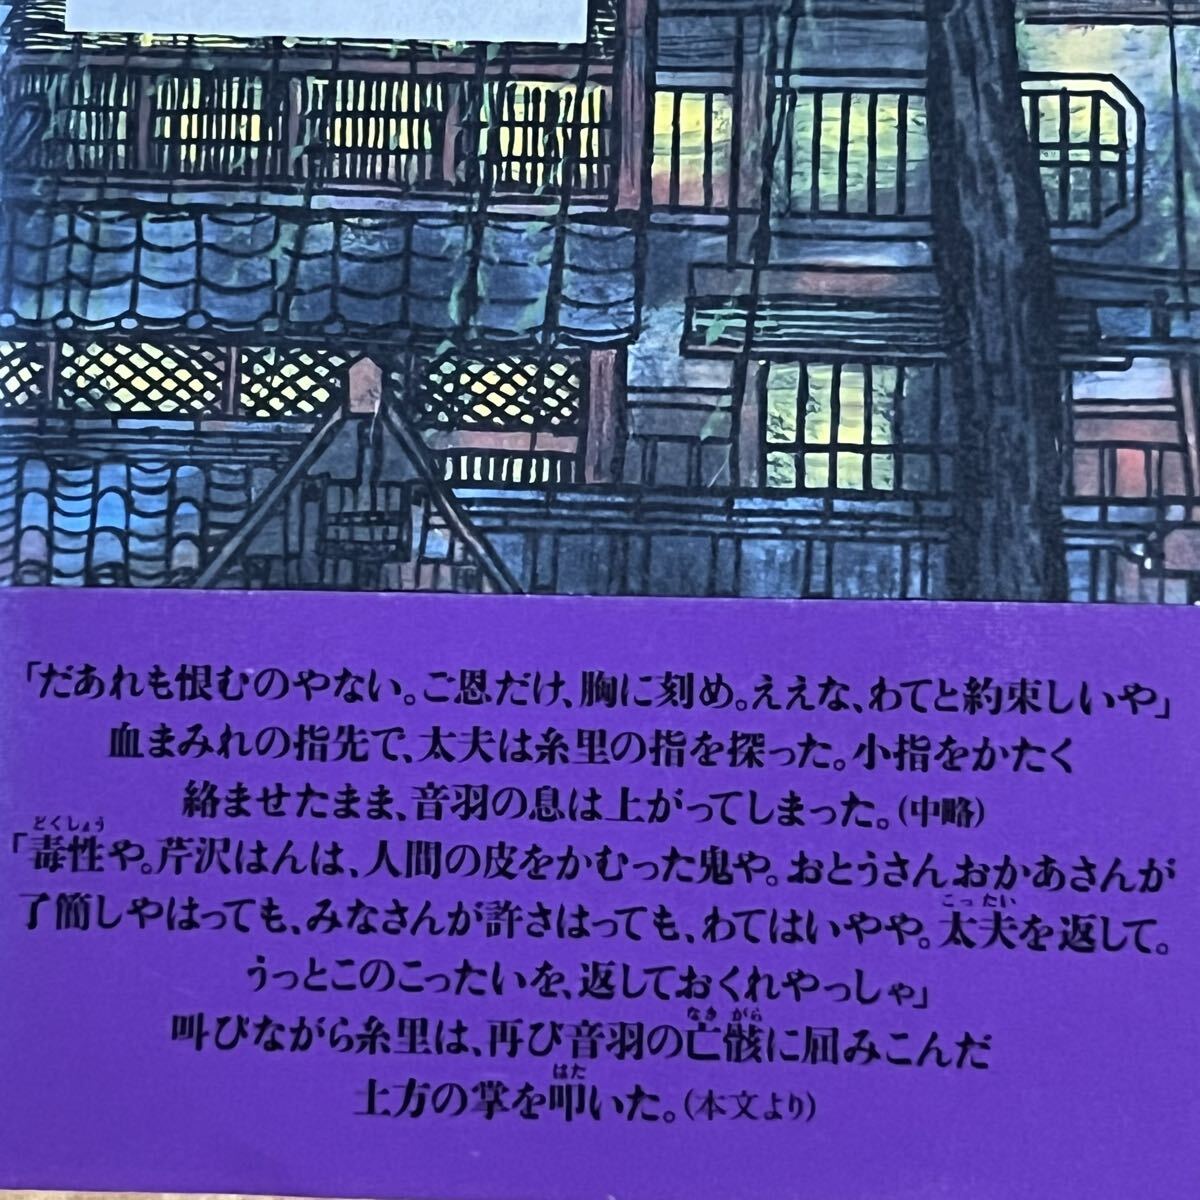 「だあれも恨むのやない。ご恩だけ、胸に刻め。ええな、わてと約束しいや」
血まみれの指先で、太夫は糸里の指を探った。小指をかたく
絡ませたまま、音羽の息は上がってしまった。(中略)
どくしょう
「毒性や。芹沢はんは、人間の皮をかむった鬼や。おとうさんおかあさんが
こったい
了簡しやはっても、みなさんが許さはっても、わてはいやや。太夫を返して。
うっとこのこったいを、返しておくれやっしゃ」
なきがら
叫びながら糸里は、再び音羽の亡骸に屈みこんだ
はた
土方の掌を叩いた。(本文より)